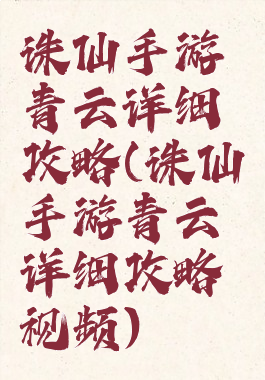 诛仙手游
青云详细
攻略(诛仙
手游青云
详细攻略
视频)